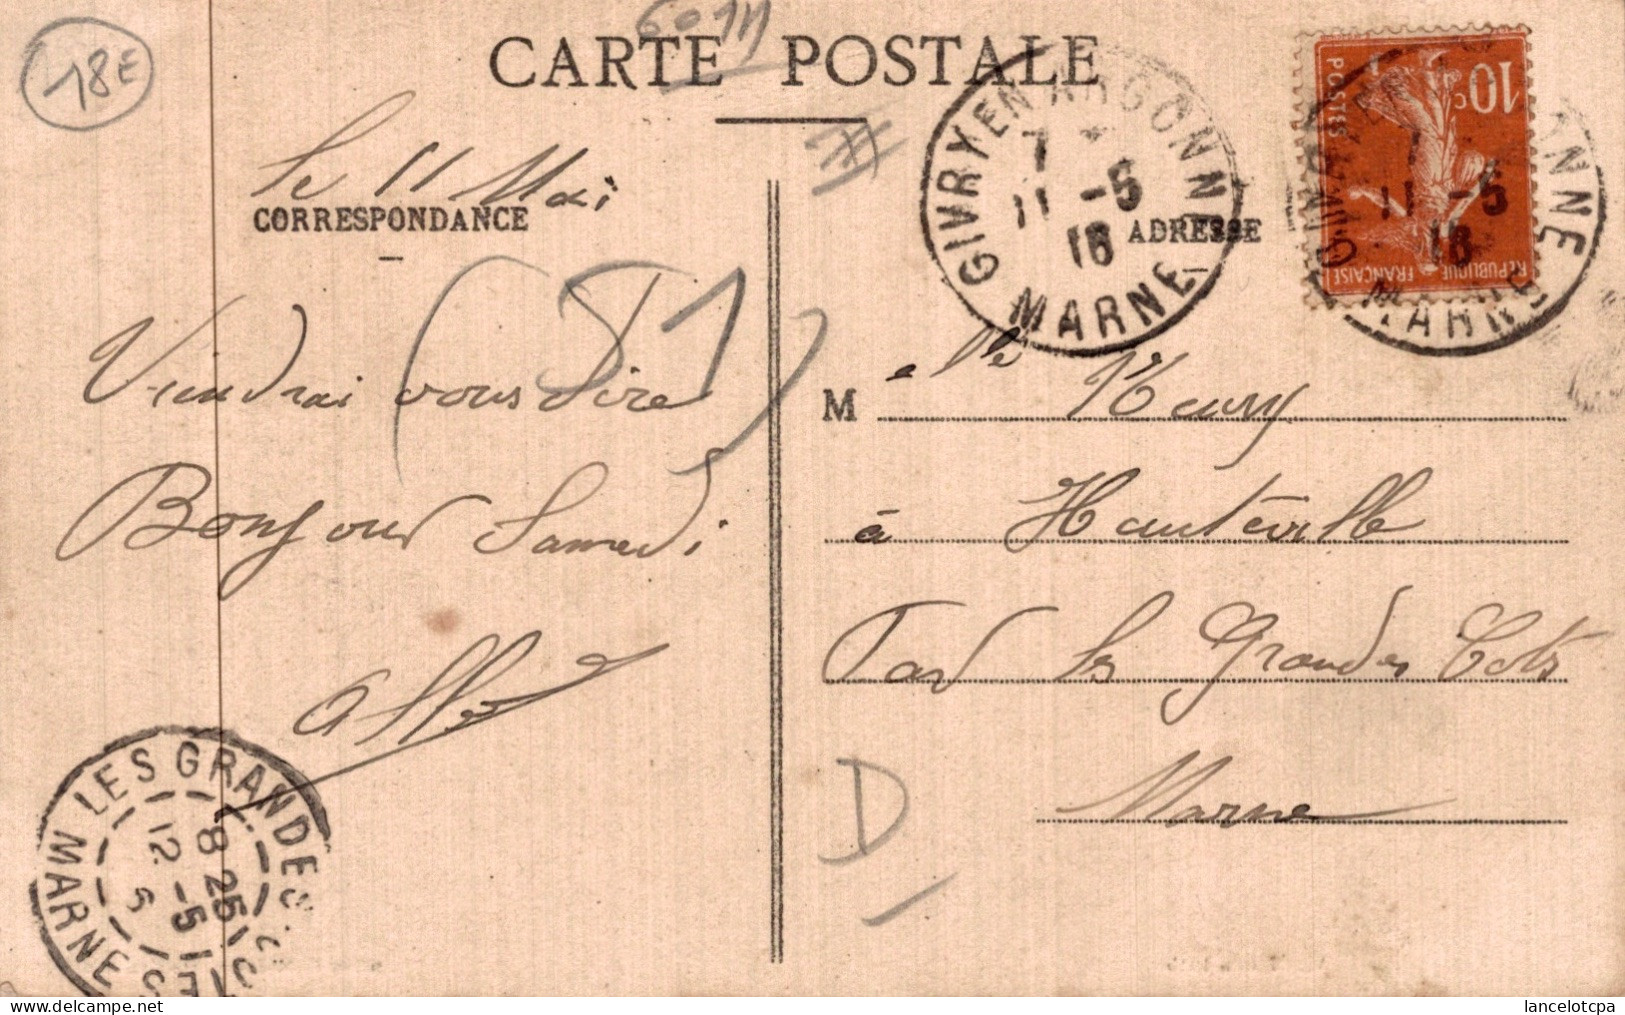 18E
CARTE POSTALE
le 11 Mai
CORRESPONDANCE
ADRESSE
GIVRY EN ARGONNE
7
11 -5
16
MARNE
10c
POSTES
REPUBLIQUE FRANÇAISE
Viendrai vous dire
Bonjour Samedi
M elle
à Hauteville
Par les Grandes Cotes
Marne
D
LES GRANDES
8 25
12 -5
MARNE
lancelotcpa